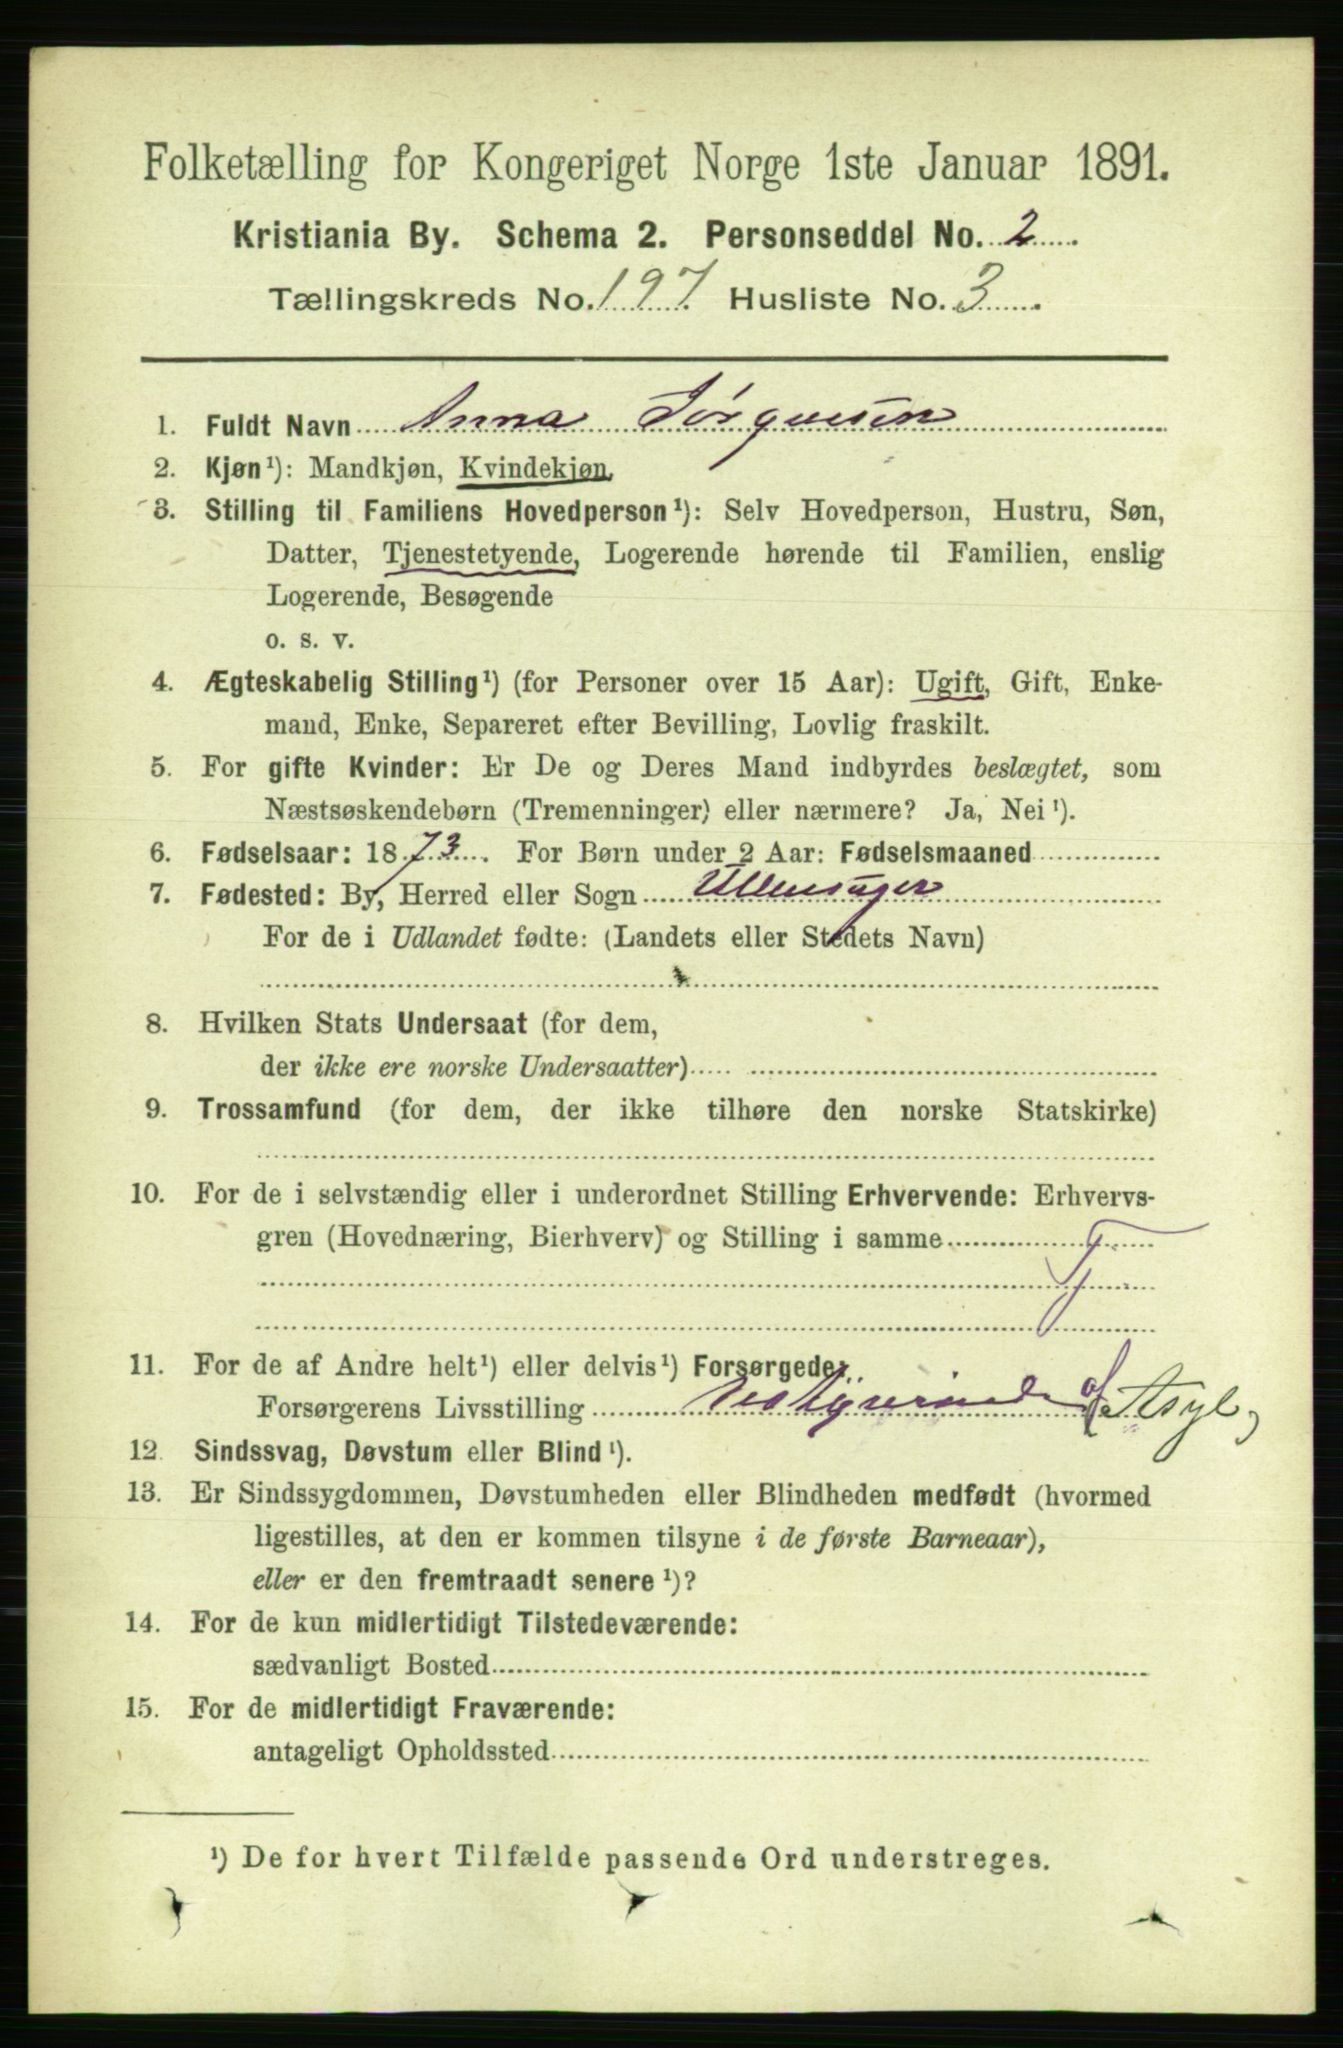 Folketælling for Kongeriget Norge 1ste Januar 1891.
Kristiania By. Schema 2. Personseddel No. 2
Tællingskreds No. 197 Husliste No. 3
1. Fuldt Navn Anna Jørgensen
2. Kjøn¹): Mandkjøn, Kvindekjøn,
3. Stilling til Familiens Hovedperson¹): Selv Hovedperson, Hustru, Søn,
Datter, Tjenestetyende, Logerende hørende til Familien, enslig
Logerende, Besøgende
o. s. v.
4. Ægteskabelig Stilling¹) (for Personer over 15 Aar): Ugift, Gift, Enke-
mand, Enke, Separeret efter Bevilling, Lovlig fraskilt.
5. For gifte Kvinder: Er De og Deres Mand indbyrdes beslægtet, som
Næstsøskendebørn (Tremenninger) eller nærmere? Ja, Nei¹).
6. Fødselsaar: 1873. For Børn under 2 Aar: Fødselsmaaned
7. Fødested: By, Herred eller Sogn Ullensager
For de i Udlandet fødte: (Landets eller Stedets Navn)
8. Hvilken Stats Undersaat (for dem,
der ikke ere norske Undersaatter)
9. Trossamfund (for dem, der ikke tilhøre den norske Statskirke)
10. For de i selvstændig eller i underordnet Stilling Erhvervende: Erhvervs-
gren (Hovednæring, Bierhverv) og Stilling i samme
11. For de af Andre helt¹) eller delvis¹) Forsørgede:
Forsørgerens Livsstilling Bestyrerinde af Asyl
12. Sindssvag, Døvstum eller Blind¹).
13. Er Sindssygdommen, Døvstumheden eller Blindheden medfødt (hvormed
ligestilles, at den er kommen tilsyne i de første Barneaar),
eller er den fremtraadt senere¹)?
14. For de kun midlertidigt Tilstedeværende:
sædvanligt Bosted
15. For de midlertidigt Fraværende:
antageligt Opholdssted
¹) De for hvert Tilfælde passende Ord understreges.